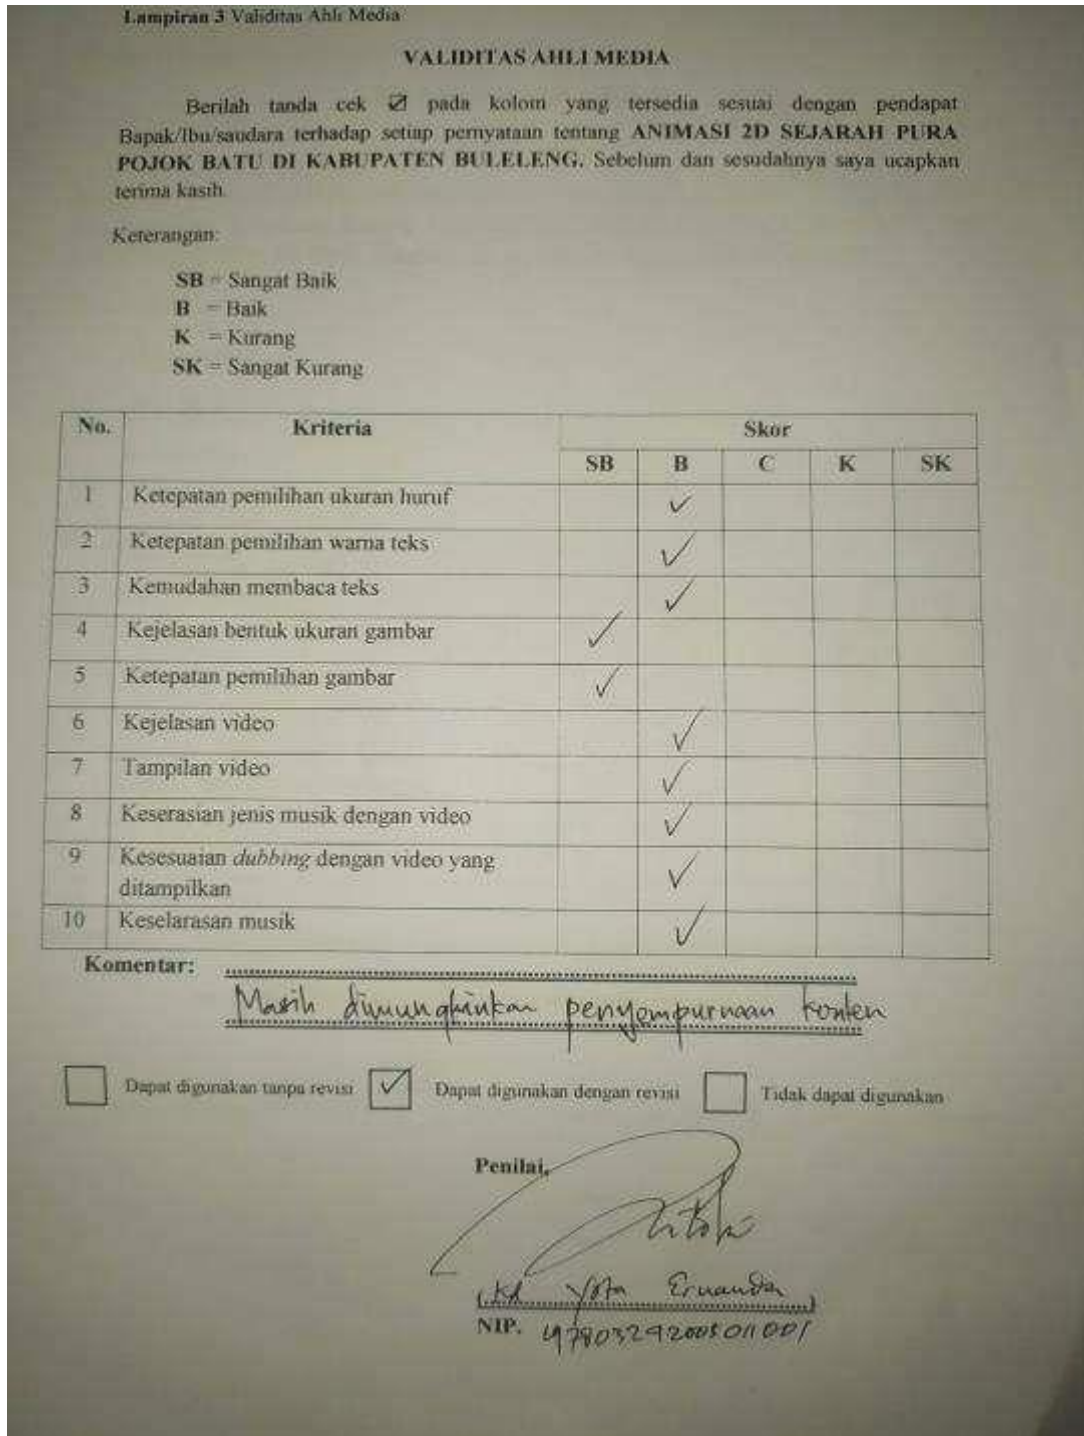 Lampiran 3 Validitas Ahli Media
VALIDITAS AHLI MEDIA
Berilah tanda cek ☑ pada kolom yang tersedia sesuai dengan pendapat
Bapak/Ibu/saudara terhadap setiap pernyataan tentang ANIMASI 2D SEJARAH PURA
POJOK BATU DI KABUPATEN BULELENG. Sebelum dan sesudahnya saya ucapkan
terima kasih.
Keterangan:
SB = Sangat Baik
B = Baik
K = Kurang
SK = Sangat Kurang
No. Kriteria Skor
SB B C K SK
1 Ketepatan pemilihan ukuran huruf ✓
2 Ketepatan pemilihan warna teks ✓
3 Kemudahan membaca teks ✓
4 Kejelasan bentuk ukuran gambar ✓
5 Ketepatan pemilihan gambar ✓
6 Kejelasan video ✓
7 Tampilan video ✓
8 Keserasian jenis musik dengan video ✓
9 Kesesuaian dubbing dengan video yang
ditampilkan ✓
10 Keselarasan musik ✓
Komentar:
Masih dimungkinkan penyempurnaan konten
Dapat digunakan tanpa revisi ✓ Dapat digunakan dengan revisi Tidak dapat digunakan
Penilai,
(Kd Yota Ernanda)
NIP.